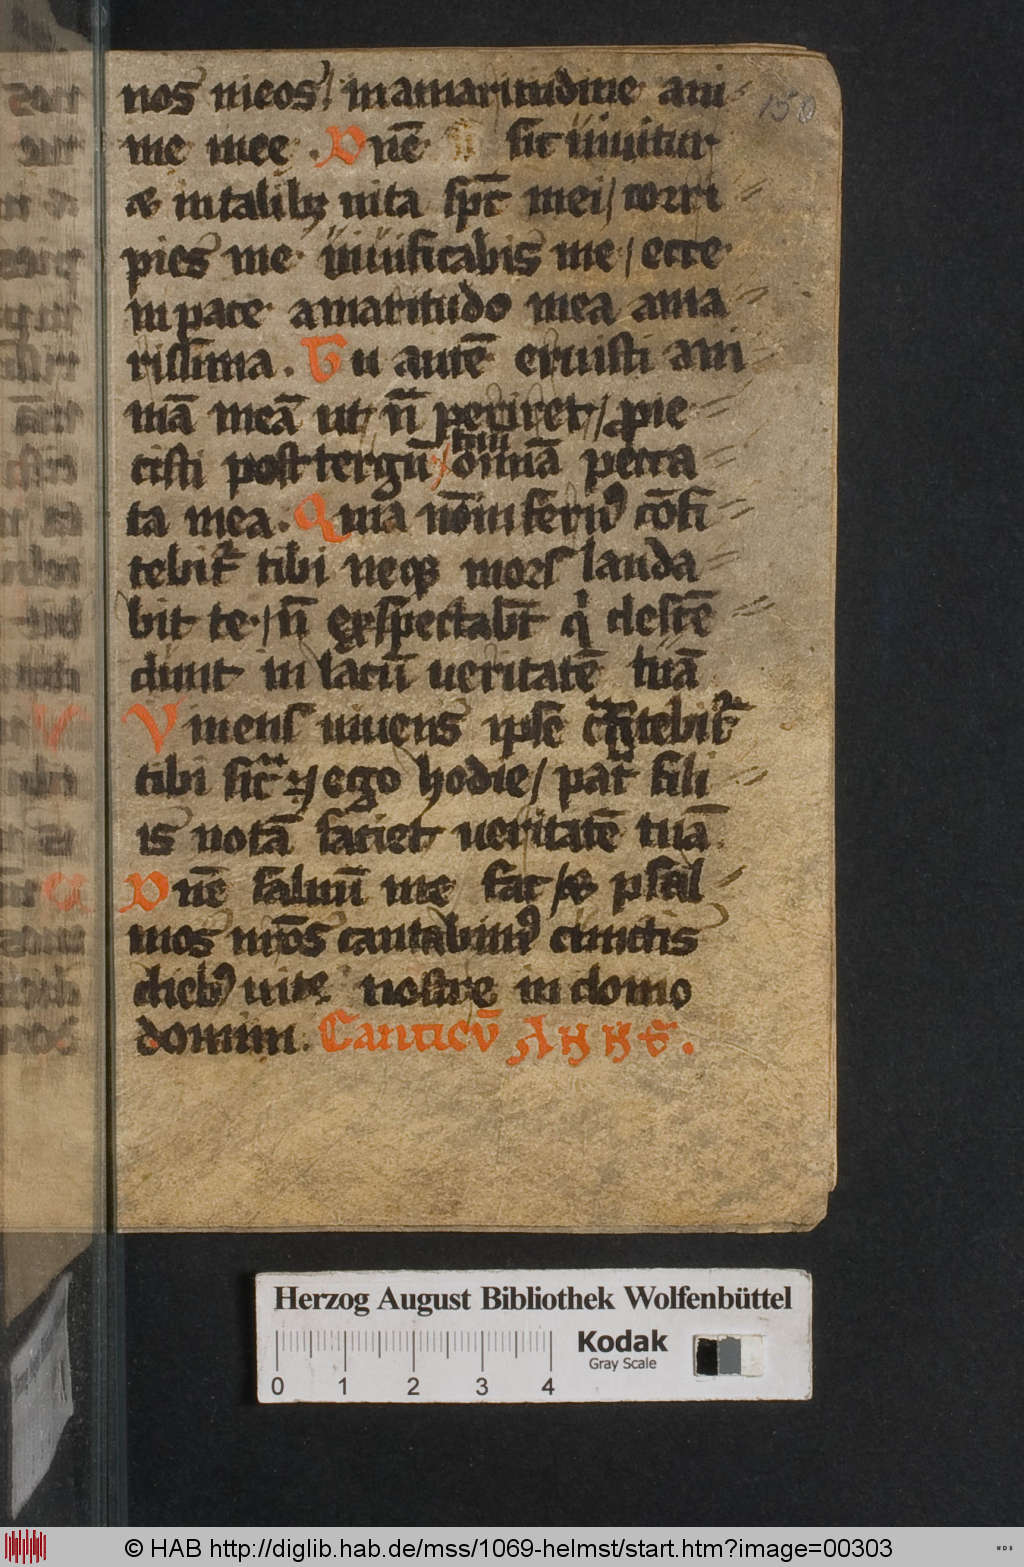 nos meos / in amaritudine ani
me mee . Dn̄e sic uiuitur
& in talibꝫ uita sp̄c mei / corri
pies me uiuificabis me / ecce
in pace amaritudo mea ama
rissima . Tu autē eruisti ani
mā meā ut n̄ periret / proie
cisti post tergū tuū om̄ia pecca
ta mea . Quia nō infernꝰ cōfi
tebit᷑ tibi neqꝫ mors lauda
bit te / n̄ exspectabt̄ q̇ descē
dunt in lacū ueritatē tuā
Viuens uiuens ipse cōfitebit᷑
tibi sic᷑ ⁊ ego hodie / pat̄ fili
is notā faciet ueritatē tuā
Dn̄e saluū me fac / & psal
mos nr̄os cantabimꝰ cunctis
diebꝰ uite nostre in domo
domini . Canticū Anne .
150
Herzog August Bibliothek Wolfenbüttel
Kodak
Gray Scale
0 1 2 3 4
© HAB http://diglib.hab.de/mss/1069-helmst/start.htm?image=00303